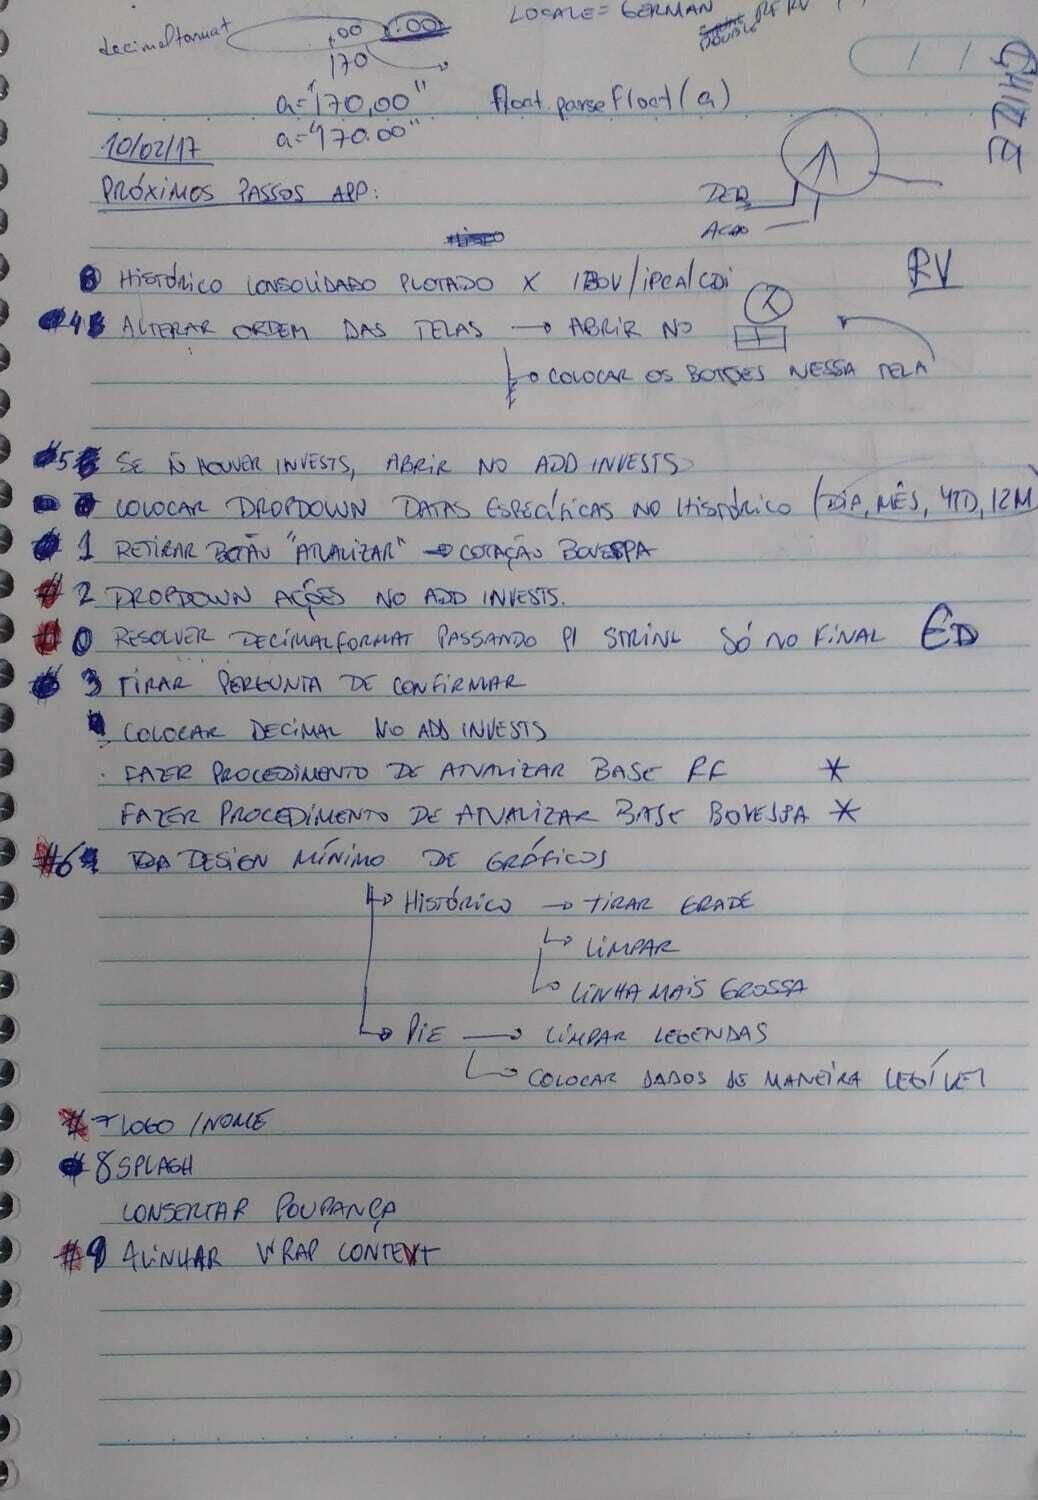 LOCALE = GERMAN
decimalformat ,00 .00 DOUBLE
170
a="170,00" float.parsefloat(a)
a="170.00"
10/02/17
PRÓXIMOS PASSOS APP:
HISTÓRICO CONSOLIDADO PLOTADO X IBOV/IPCA/CDI RV
#4 ALTERAR ORDEM DAS TELAS → ABRIR NO
↳ COLOCAR OS BOTÕES NESSA TELA
#5 SE Ñ HOUVER INVESTS, ABRIR NO ADD INVESTS
COLOCAR DROPDOWN DATAS ESPECÍFICAS NO HISTÓRICO (DIA, MÊS, YTD, 12M
# 1 RETIRAR BOTÃO "ATUALIZAR" → COTAÇÃO BOVESPA
# 2 DROPDOWN AÇÕES NO ADD INVESTS.
# 0 RESOLVER DECIMALFORMAT PASSANDO P/ STRING SÓ NO FINAL ED
# 3 TIRAR PERGUNTA DE CONFIRMAR
COLOCAR DECIMAL NO ADD INVESTS
. FAZER PROCEDIMENTO DE ATUALIZAR BASE RF *
FAZER PROCEDIMENTO DE ATUALIZAR BASE BOVESPA *
#6 DESIGN MÍNIMO DE GRÁFICOS
↳ HISTÓRICO → TIRAR GRADE
↳ LIMPAR
↳ LINHA MAIS GROSSA
↳ PIE → LIMPAR LEGENDAS
↳ COLOCAR DADOS DE MANEIRA LEGÍVEL
# 7 LOGO / NOME
# 8 SPLASH
CONSERTAR POUPANÇA
# 9 ALINHAR WRAP CONTENT